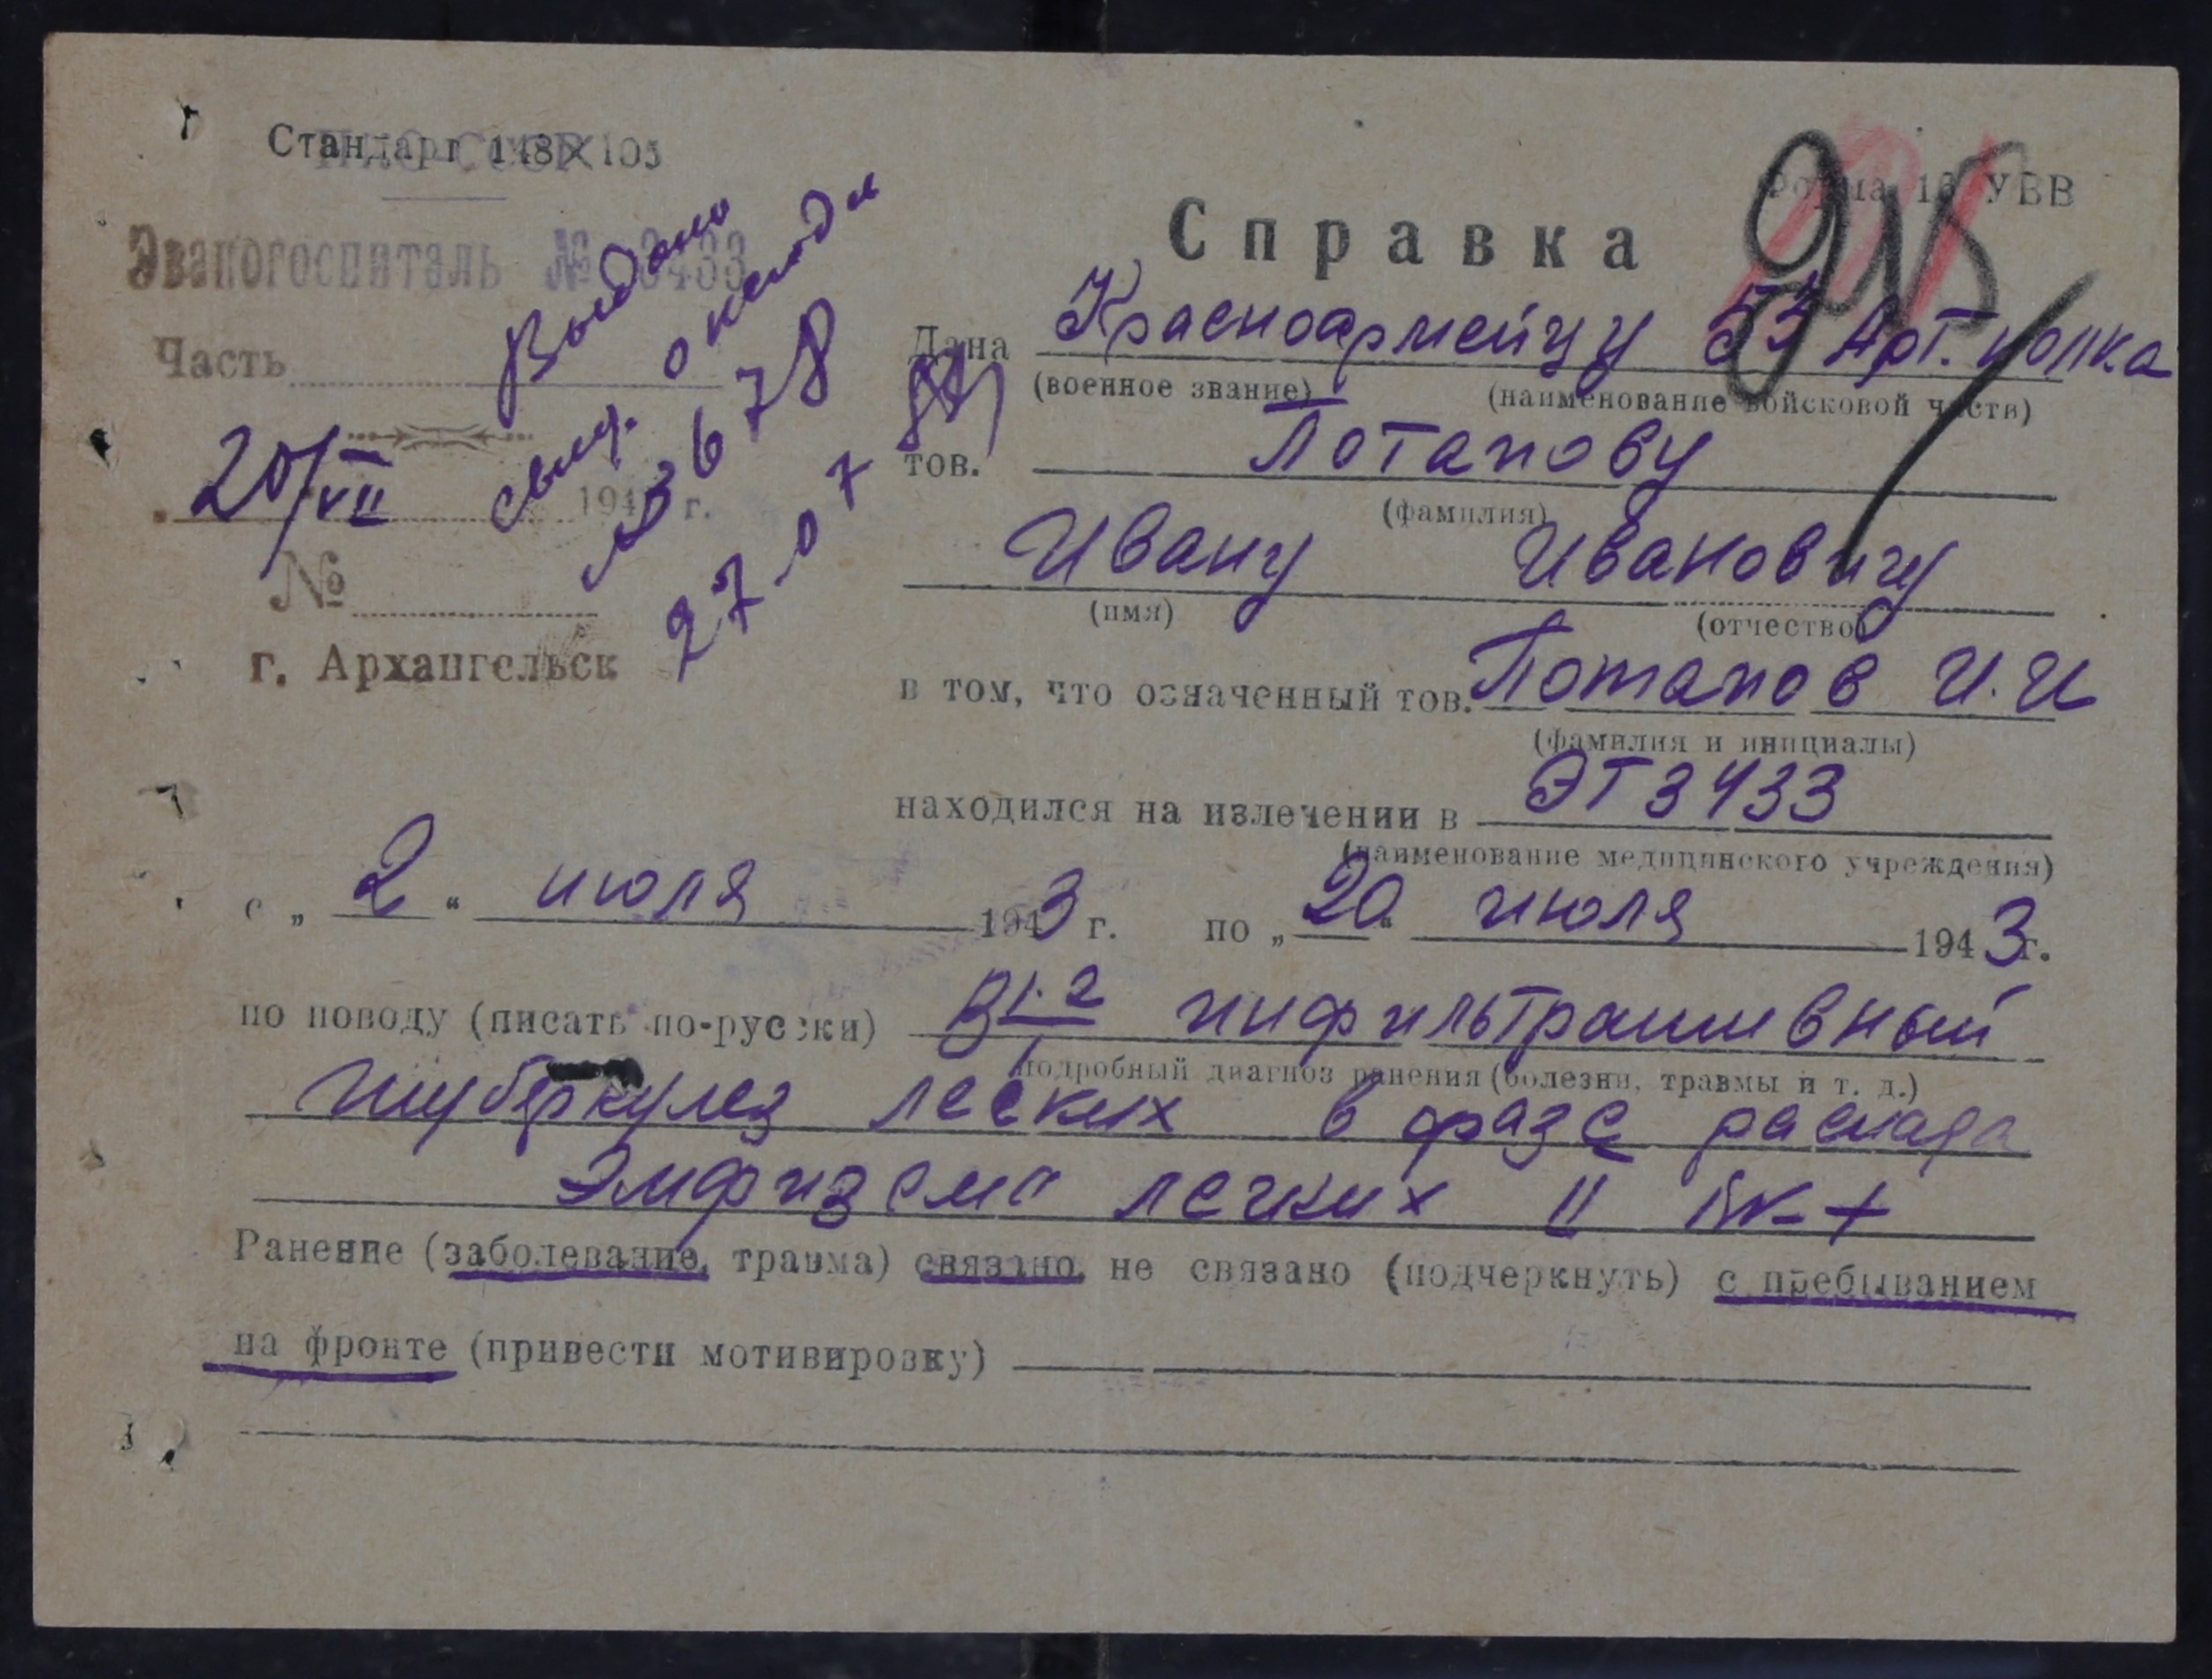 Стандарт 148×105
НКО-СССР
Форма 16 УВВ
Эвакогоспиталь № 3433
Часть
20/VII 194 г.
№
г. Архангельск
Выдано
свид. о
№ 3678
27.07
Справка
Дана Красноармейцу 53 Арт. полка
(военное звание) (наименование войсковой части)
тов. Потапову
(фамилия)
Ивану Ивановичу
(имя) (отчество)
в том, что означенный тов. Потапов И.И
(фамилия и инициалы)
находился на излечении в ЭГ 3433
(наименование медицинского учреждения)
с „ 2 “ июля 1943 г. по „ 20 “ июля 1943 г.
по поводу (писать по-русски) инфильтративный
подробный диагноз ранения (болезни, травмы и т. д.)
туберкулез легких в фазе распада
Эмфизема легких II ВК-+
Ранение (заболевание, травма) связано, не связано (подчеркнуть) с пребыванием
на фронте (привести мотивировку)